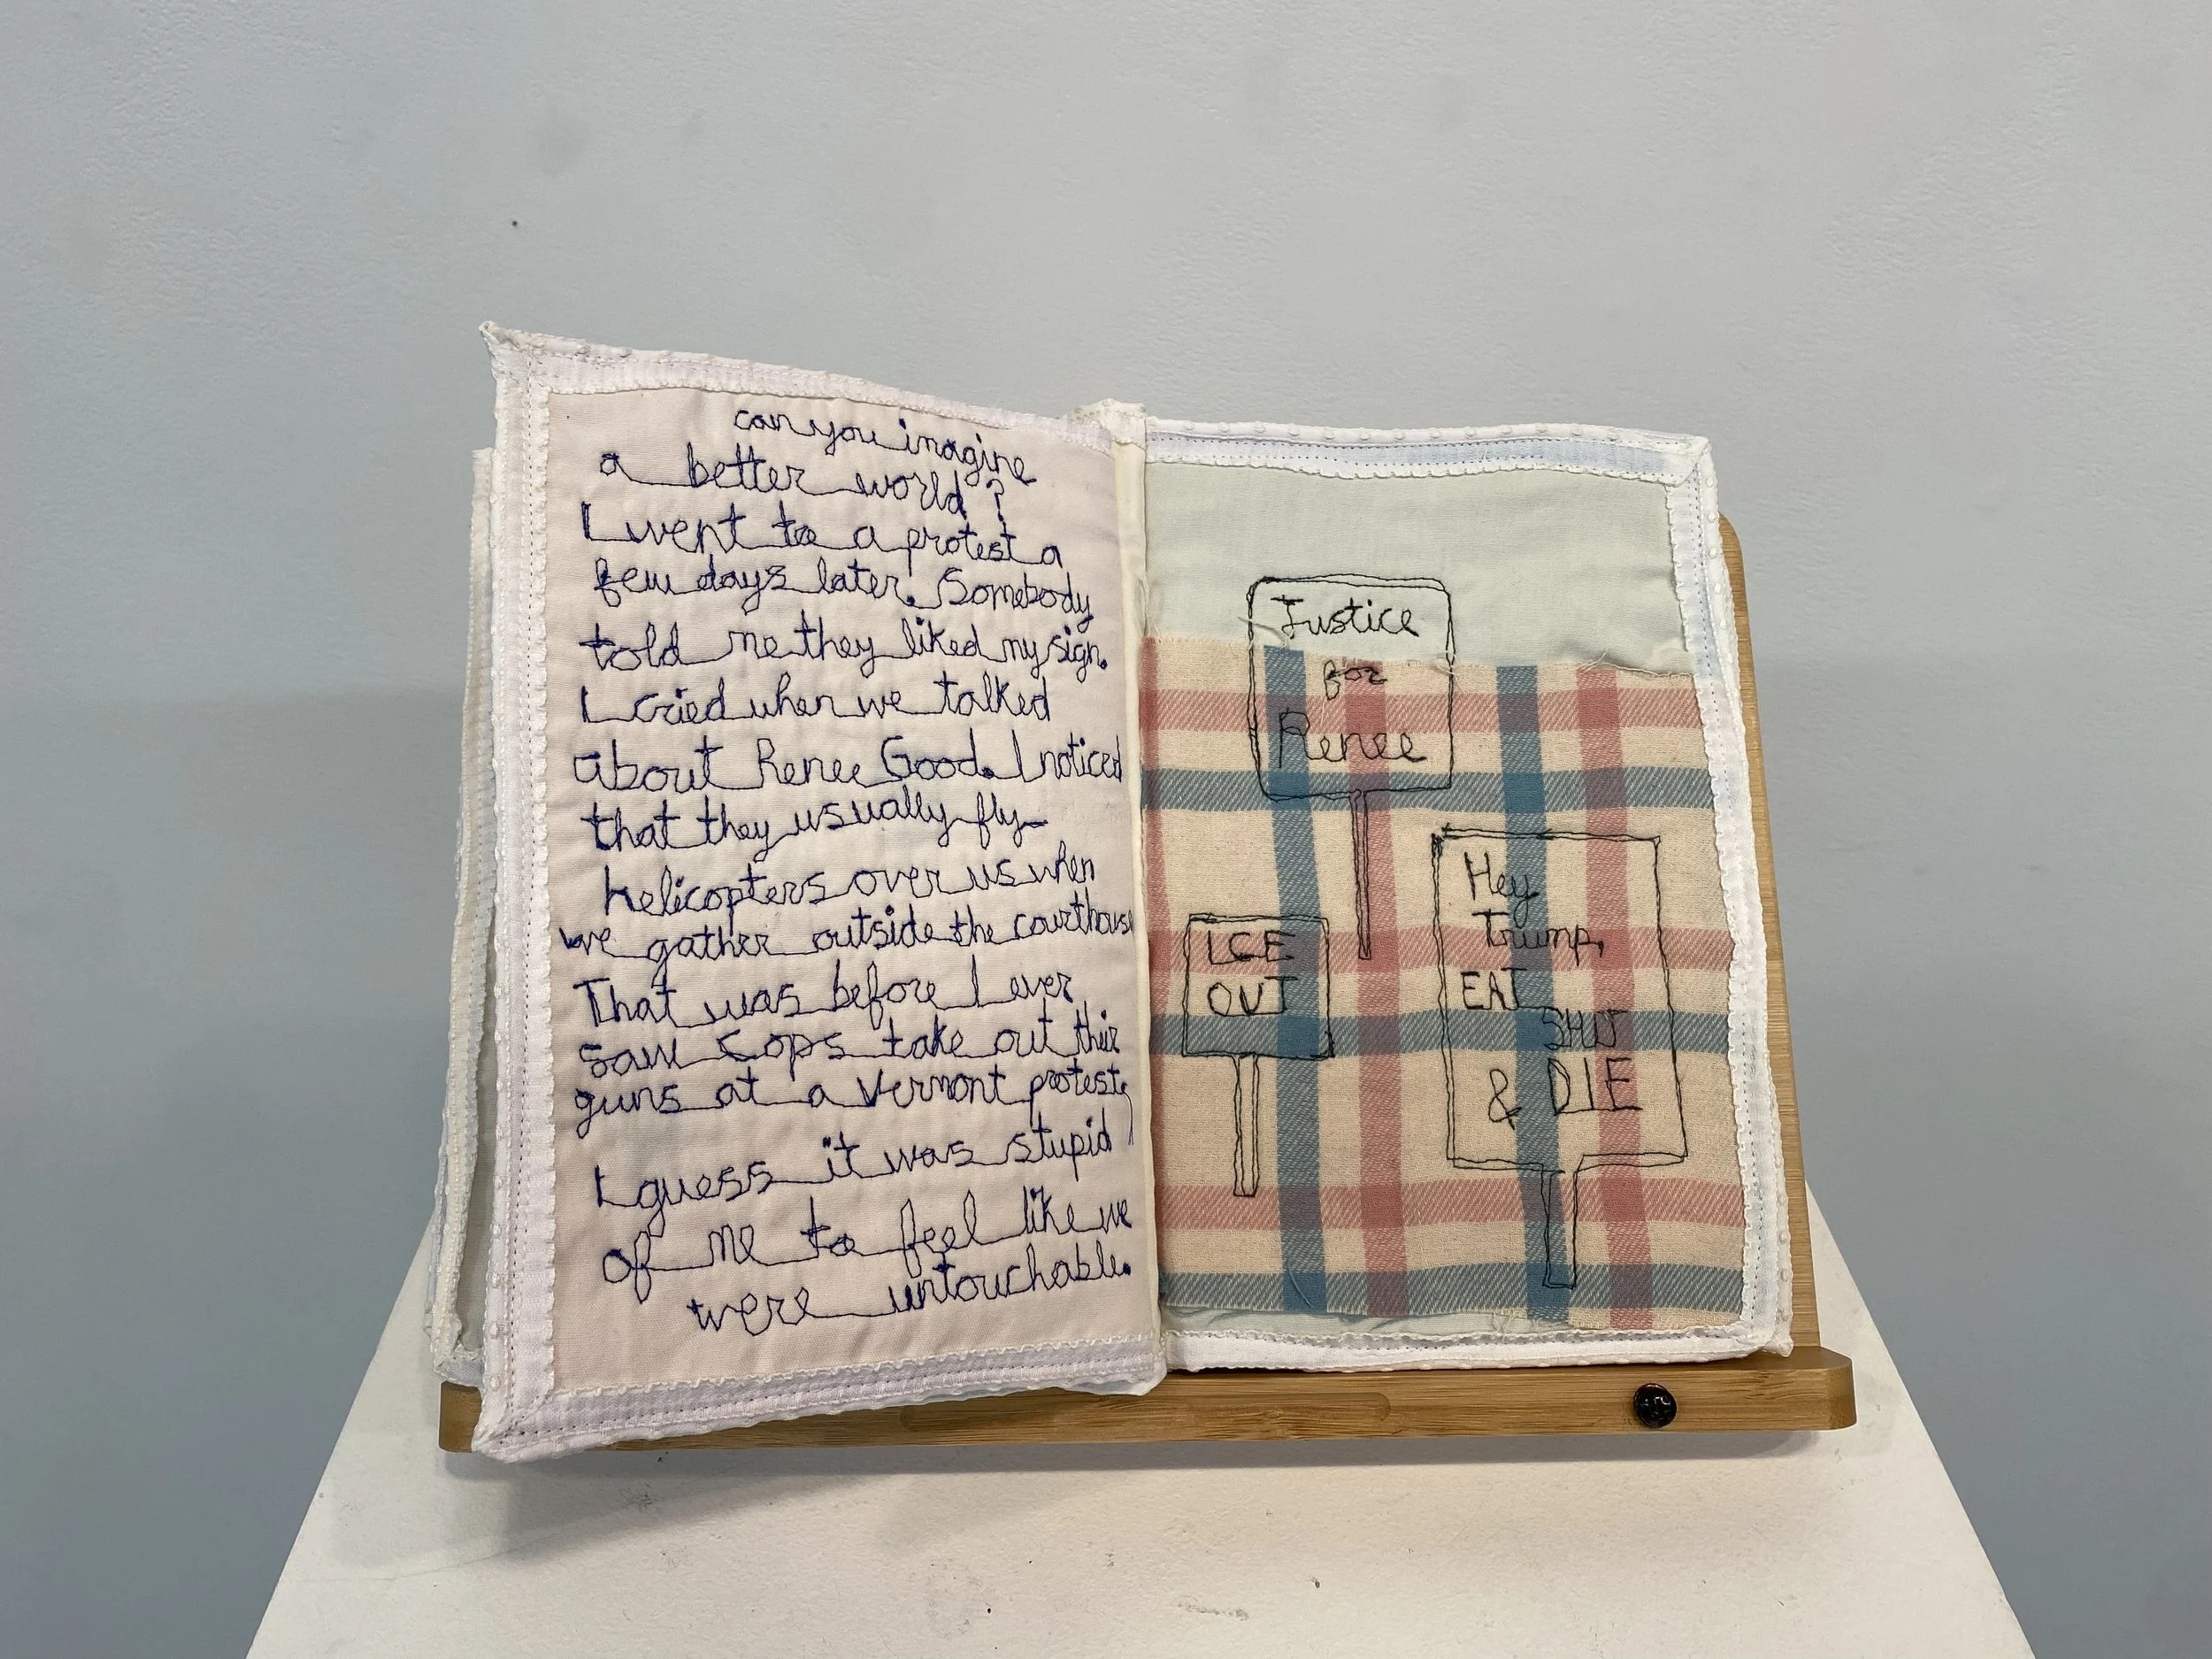 can you imagine
a better world?
I went to a protest a
few days later. Somebody
told me they liked my sign.
I cried when we talked
about Renee Good. I noticed
that they usually fly
helicopters over us when
we gather outside the courthouse
That was before I ever
saw cops take out their
guns at a Vermont protest.
I guess it was stupid
of me to feel like we
were untouchable.
Justice
for
Renee
ICE
OUT
Hey
Trump,
EAT
SHIT
& DIE